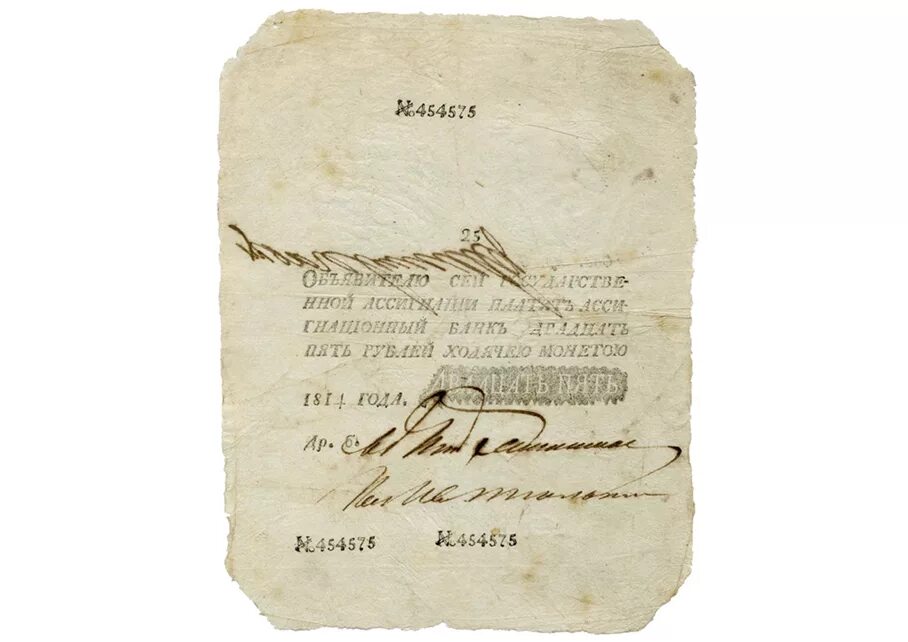 №454575
25
Объявителю сей государстве-
нной ассигнации платитъ асси-
гнаціонный банкъ двадцать
пять рублей ходячею монетою
двадцать пять
1814 года.
др. б.
№454575 №454575